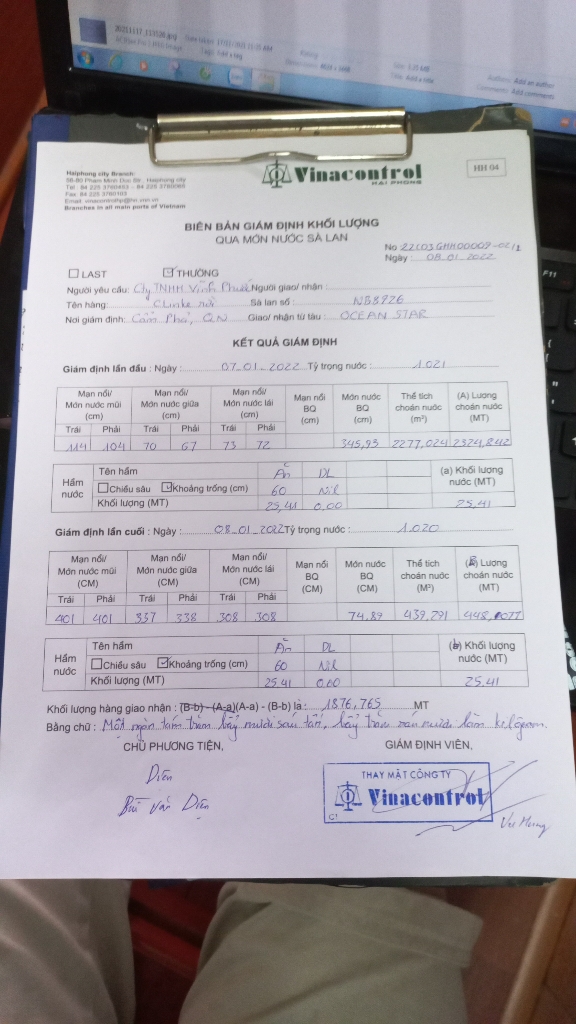 Haiphong city Branch:
Branches in all main ports of Vietnam
Vinacontrol
HAI PHONG
HH 04
BIÊN BẢN GIÁM ĐỊNH KHỐI LƯỢNG
QUA MÓN NƯỚC SÀ LAN
No 22C03GHH00009-02/1
Ngày: 08.01.2022
LAST THƯỜNG
Người yêu cầu: Cty TNHH Vĩnh Phước Người giao/ nhận:
Tên hàng: Clinke rời Sà lan số: NB8926
Nơi giám định: Cẩm Phả, QN Giao/ nhận từ tàu: OCEAN STAR
KẾT QUẢ GIÁM ĐỊNH
Giám định lần đầu: Ngày: 07-01-2022 Tỷ trọng nước: 1.021
Mạn nổi/ Món nước mũi (cm) Mạn nổi/ Món nước giữa (cm) Mạn nổi/ Món nước lái (cm) Mạn nổi BQ (cm) Món nước BQ (cm) Thể tích choán nước (m³) (A) Lượng choán nước (MT)
Trái Phải Trái Phải Trái Phải
114 104 70 67 73 72 345,95 2277,024 2324,842
Hầm nước Tên hầm Ằn DL (a) Khối lượng nước (MT)
Chiều sâu Khoảng trống (cm) 60 Nil
Khối lượng (MT) 25,41 0,00 25,41
Giám định lần cuối: Ngày: 08-01-2022 Tỷ trọng nước: 1.020
Mạn nổi/ Món nước mũi (CM) Mạn nổi/ Món nước giữa (CM) Mạn nổi/ Món nước lái (CM) Mạn nổi BQ (CM) Món nước BQ (CM) Thể tích choán nước (M³) (B) Lượng choán nước (MT)
Trái Phải Trái Phải Trái Phải
401 401 337 338 308 308 74,89 439,291 448,077
Hầm nước Tên hầm Ằn DL (b) Khối lượng nước (MT)
Chiều sâu Khoảng trống (cm) 60 Nil
Khối lượng (MT) 25.41 0,00 25,41
Khối lượng hàng giao nhận: (B-b) - (A-a)(A-a) - (B-b) là: 1876,765 MT
Bằng chữ: Một ngàn tám trăm bẩy mươi sáu tấn, bẩy trăm sáu mươi lăm kilôgam.
CHỦ PHƯƠNG TIỆN, GIÁM ĐỊNH VIÊN,
Diện
Bùi Văn Diện
THAY MẶT CÔNG TY
Vinacontrol
F11